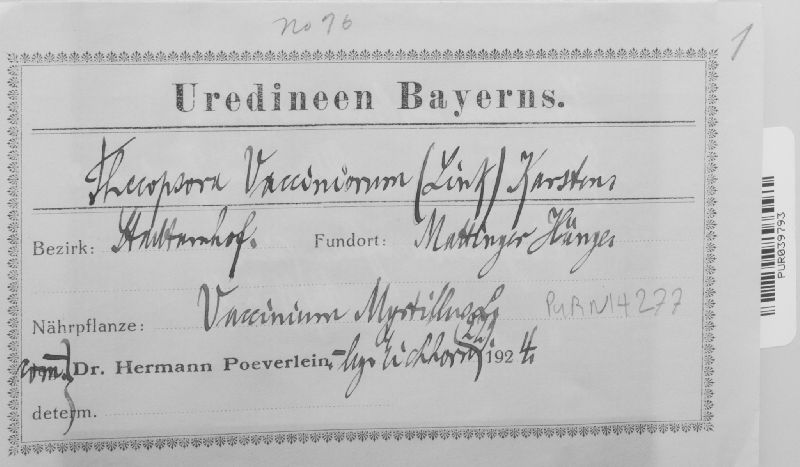 No 76
1
Uredineen Bayerns.
Thecopsora Vacciniorum (Link) Karsten
Bezirk: Stadtamhof. Fundort: Mattinger Hänge
Nährpflanze: Vaccinium Myrtillus L. PUR N14277
com. Dr. Hermann Poeverlein, 1924
determ.
PUR039793